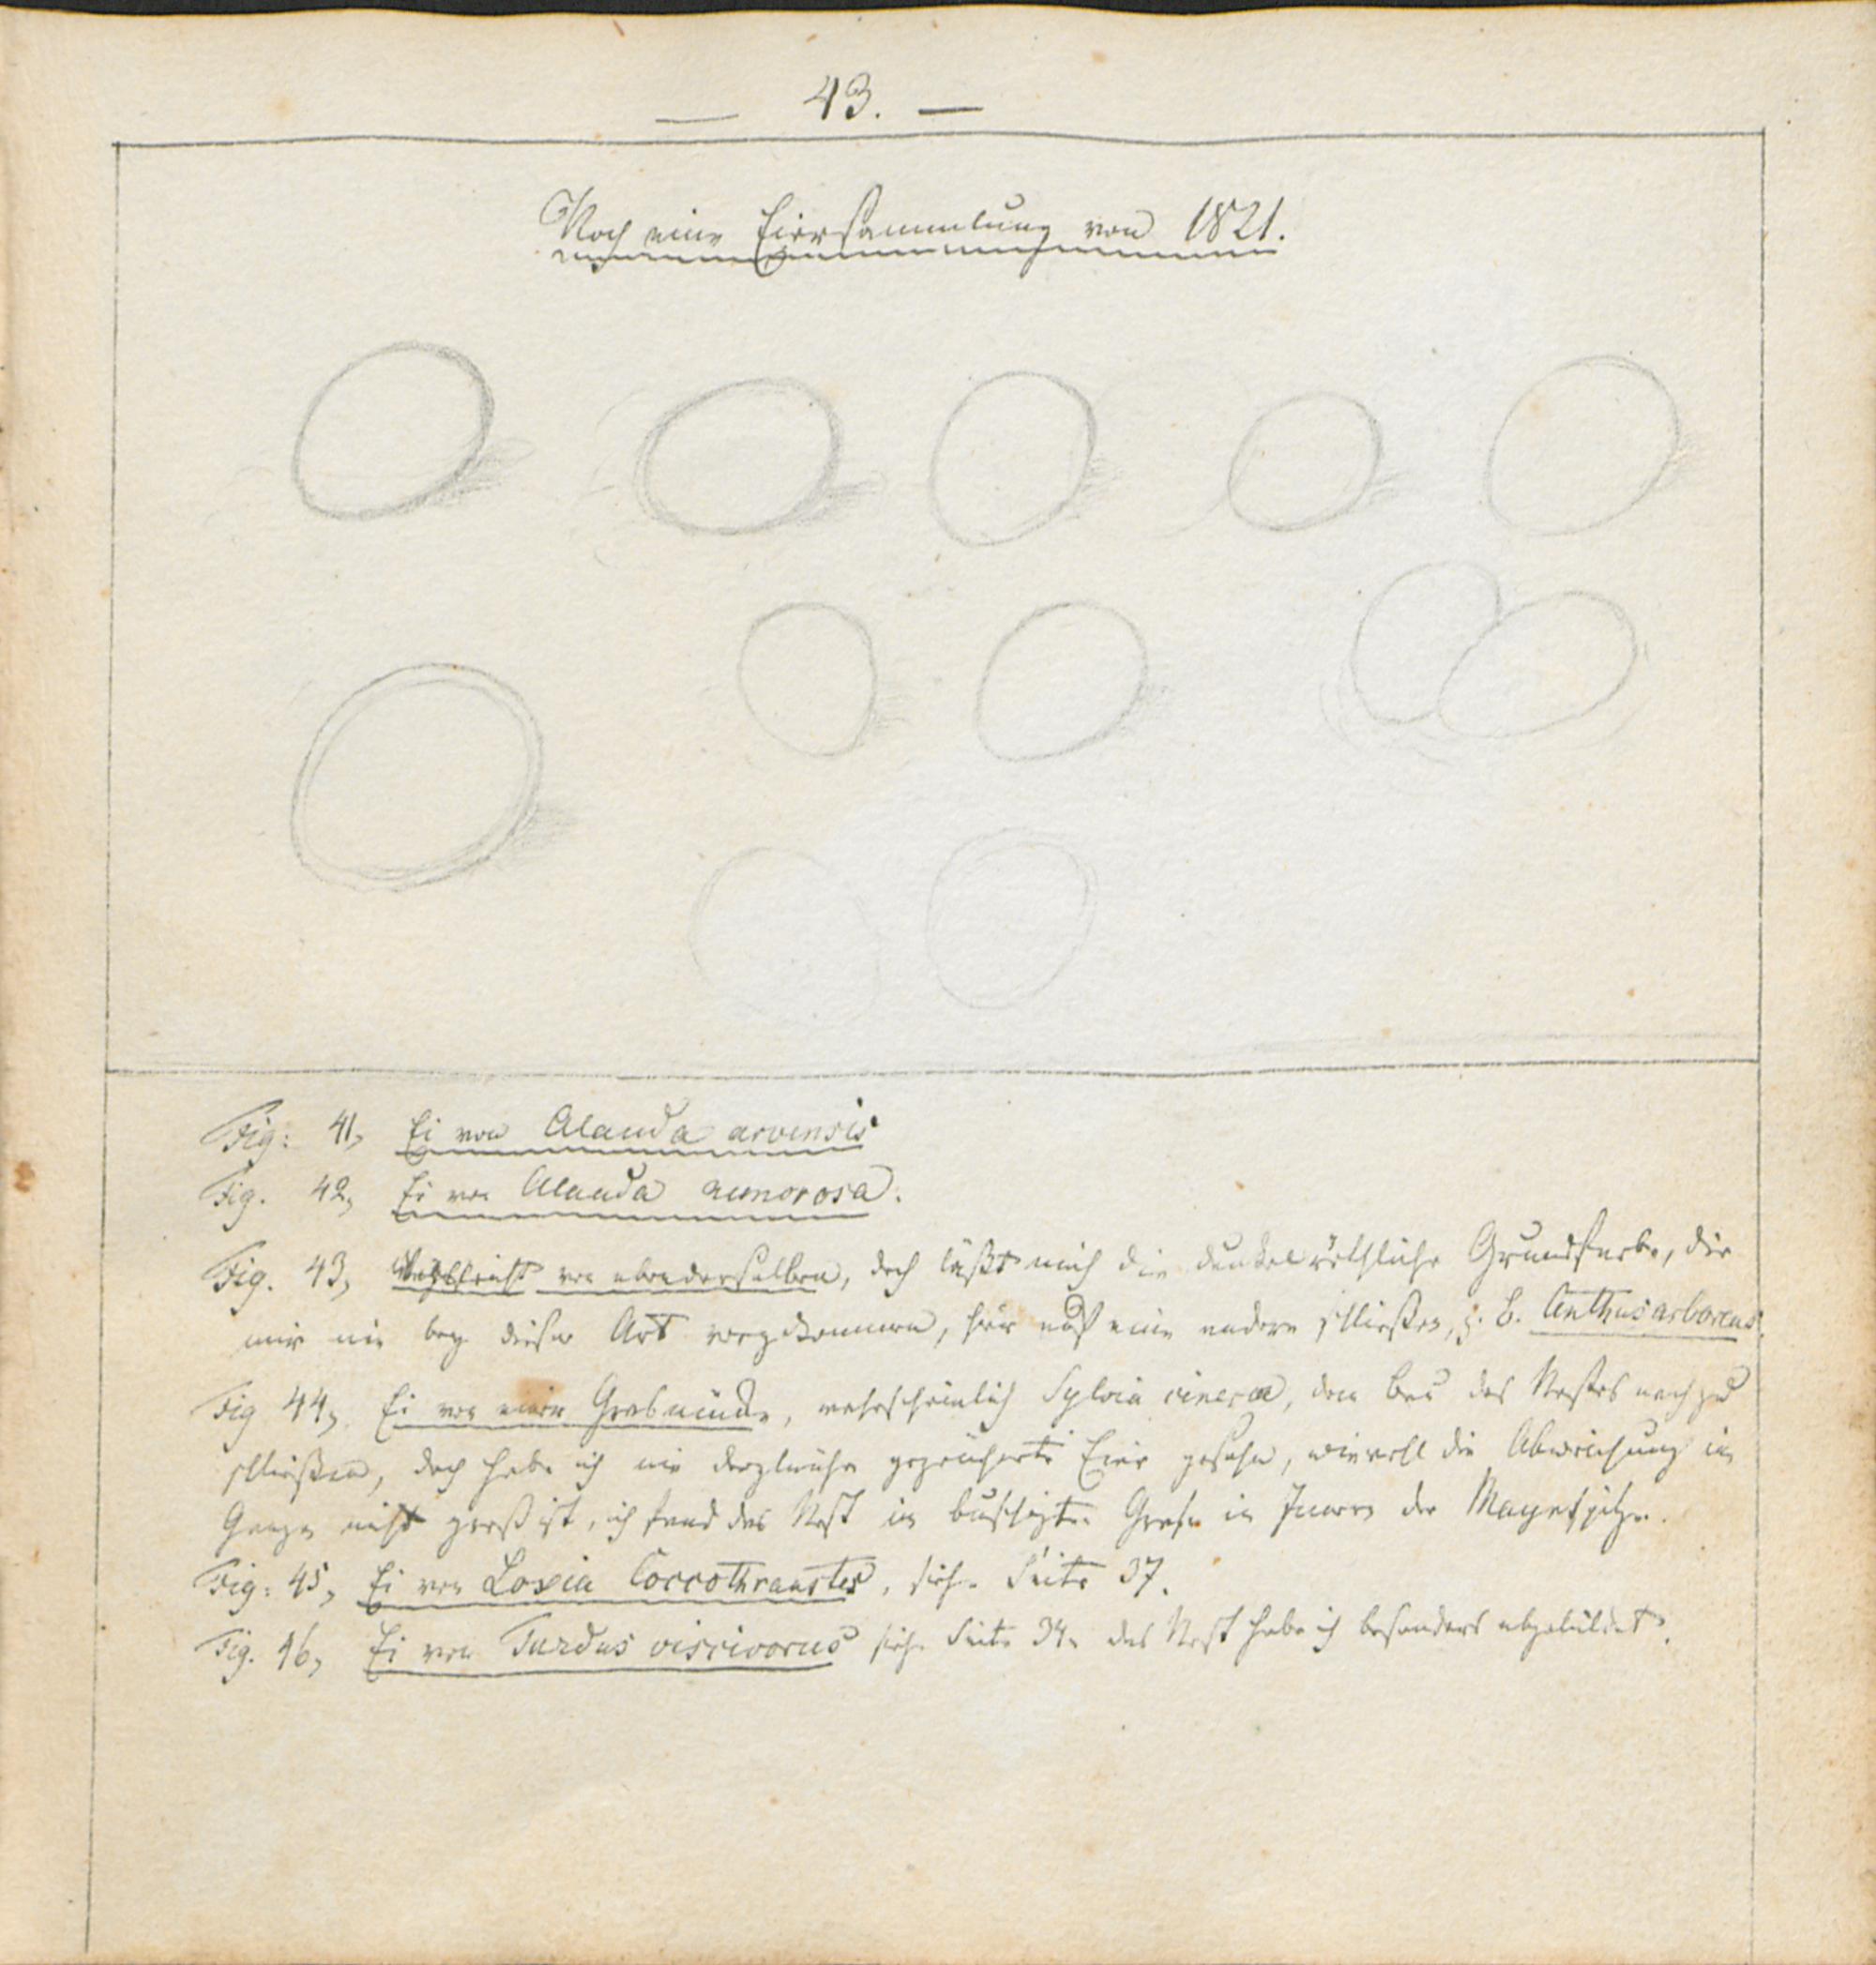 — 43. —
Noch eine Eiersammlung von 1821.
Fig: 41, Ei von Alauda arvensis
Fig. 42, Ei von Alauda nemorosa.
Fig. 43, Vielleicht von ebenderselben, doch läßt mich die dunkel röthliche Grundfarbe, die
mir nie bey dieser Art vorgekommen, hier auf eine andere schließen, z. B. Anthus arboreus.
Fig 44, Ei von einer Grasmücke, wahrscheinlich Sylvia cinerea, dem Bau des Nestes nach zu
schließen, doch habe ich nie dergleichen gezeichnete Eier gesehn, wiewohl die Abweichung im
Ganzen nicht groß ist, ich fand das Nest im buschigten Grase im Innern der
Fig: 45, Ei von Loxia Coccothraustes, siehe Seite 37.
Fig. 46, Ei von Turdus viscivorus siehe Seite 34. das Nest habe ich besonders abgebildet.